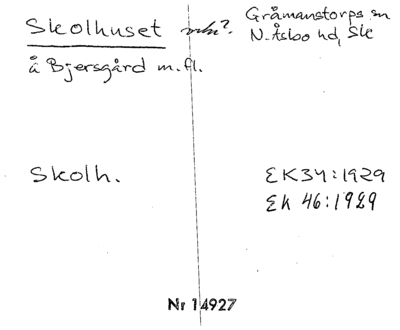 Skolhuset mln?. Gråmanstorps sn
N. Åsbo hd, Sk
å Bjersgård m.fl.
Skolh. EK34:1929
Ek 46:1929
Nr 14927